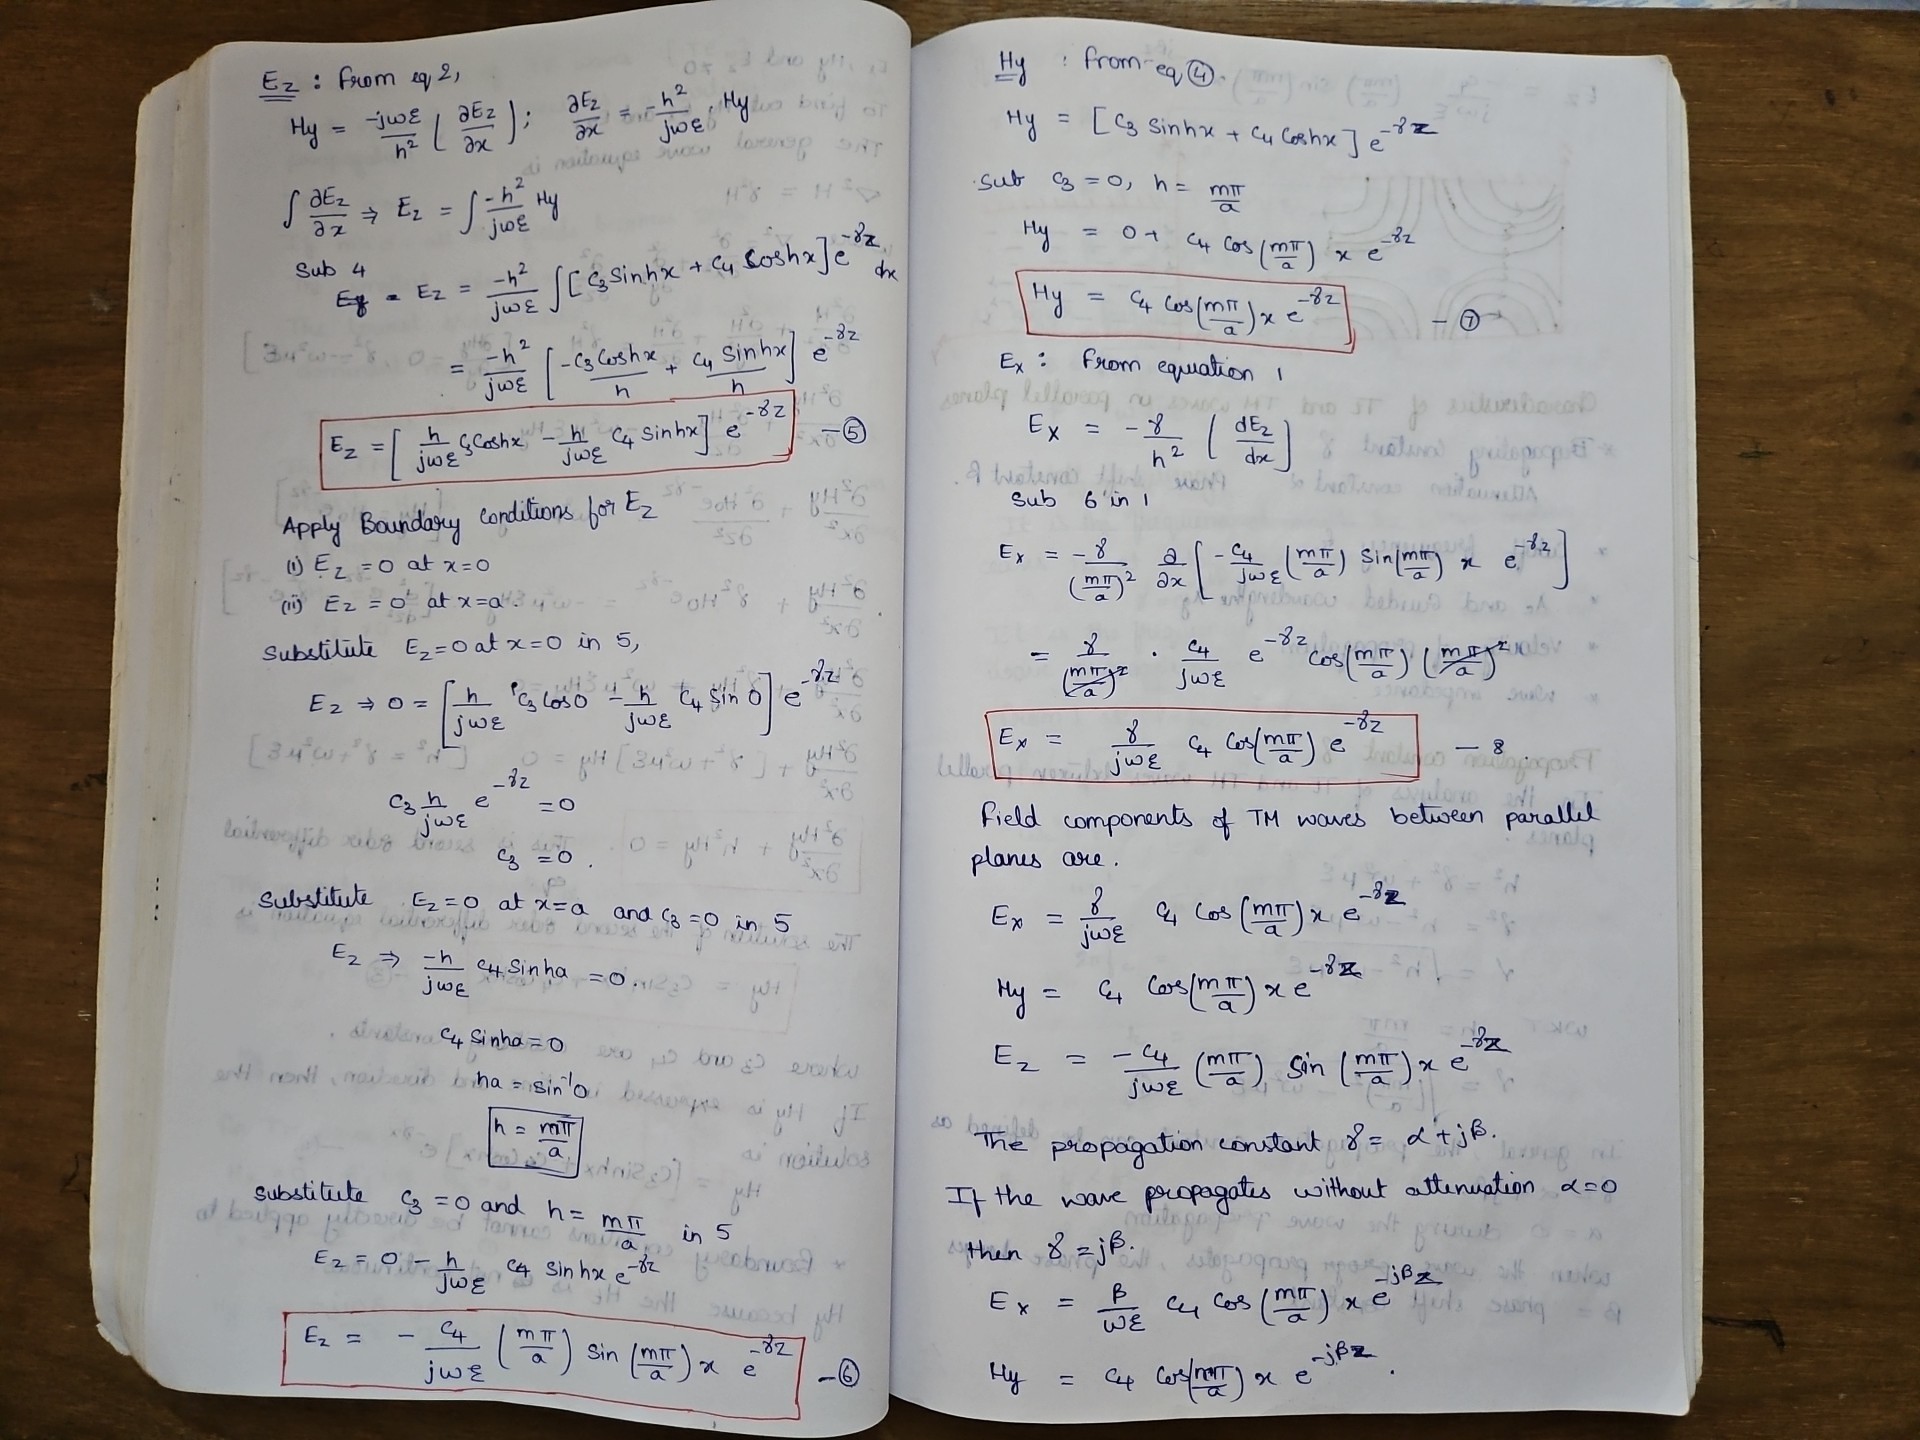 Ez : From eq 2,
Hy = -jωε/h² [∂Ez/∂x] ; ∂Ez/∂x = -h²/jωε . Hy
∫ ∂Ez/∂x ⇒ Ez = ∫ -h²/jωε Hy
Sub 4
Ez = -h²/jωε ∫ [C3 Sinhx + C4 Coshx] e^-γz dx
= -h²/jωε [-C3 Coshx/h + C4 Sinhx/h] e^-γz
Ez = [h/jωε C3 Coshx - h/jωε C4 Sinhx] e^-γz - ⑤
Apply Boundary conditions for Ez
(i) Ez = 0 at x=0
(ii) Ez = 0 at x=a.
Substitute Ez=0 at x=0 in 5,
Ez ⇒ 0 = [h/jωε C3 Cos0 - h/jωε C4 Sin 0] e^-γz
C3 h/jωε e^-γz = 0
C3 = 0.
Substitute Ez=0 at x=a and C3=0 in 5
Ez ⇒ -h/jωε C4 Sinha = 0.
C4 Sinha = 0
ha = sin⁻¹0
h = mπ/a
Substitute C3 = 0 and h = mπ/a in 5
Ez = 0 - h/jωε C4 sinhx e^-γz
Ez = - C4/jωε (mπ/a) sin (mπ/a) x e^-γz - ⑥
Hy : From eq ④.
Hy = [C3 Sinhx + C4 Coshx] e^-γz
Sub C3 = 0, h = mπ/a
Hy = 0 + C4 Cos(mπ/a) x e^-γz
Hy = C4 Cos(mπ/a) x e^-γz - ⑦
Ex : From equation 1
Ex = -γ/h² [dEz/dx]
Sub 6 in 1
Ex = -γ/(mπ/a)² ∂/∂x [-C4/jωε (mπ/a) Sin(mπ/a) x e^-γz]
= γ/(mπ/a)² . C4/jωε e^-γz Cos(mπ/a) (mπ/a)²
Ex = γ/jωε C4 Cos(mπ/a) e^-γz - 8.
Field components of TM waves between parallel
planes are.
Ex = γ/jωε C4 Cos (mπ/a) x e^-γz
Hy = C4 Cos(mπ/a) x e^-γz
Ez = -C4/jωε (mπ/a) Sin (mπ/a) x e^-γz
The propagation constant γ = α + jβ.
If the wave propagates without attenuation α=0
then γ = jβ.
Ex = β/ωε C4 Cos (mπ/a) x e^-jβz
Hy = C4 Cos(mπ/a) x e^-jβz.